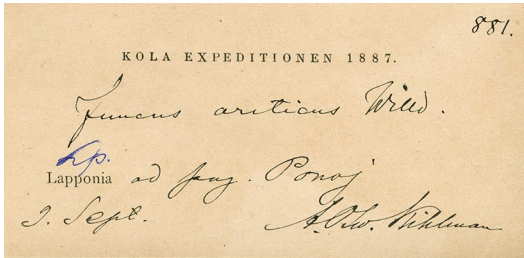 881.
KOLA EXPEDITIONEN 1887.
Juncus arcticus Willd.
Lp.
Lapponia ad pag. Ponoj
2. Sept. A. Osw. Kihlman